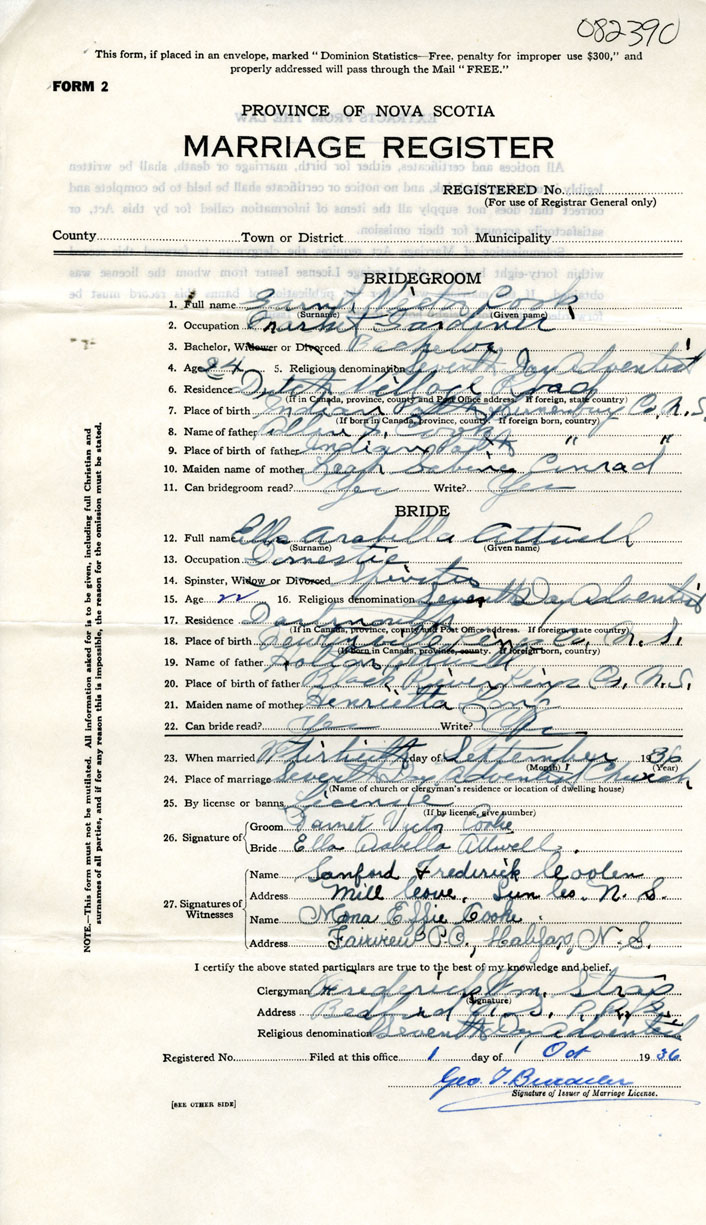 082390
This form, if placed in an envelope, marked "Dominion Statistics—Free, penalty for improper use $300," and
properly addressed will pass through the Mail "FREE."
FORM 2
PROVINCE OF NOVA SCOTIA
MARRIAGE REGISTER
REGISTERED No.
(For use of Registrar General only)
County Town or District Municipality
BRIDEGROOM
1. Full name Victor Cook
(Surname) (Given name)
2. Occupation Market Gardiner
3. Bachelor, Widower or Divorced Bachelor
4. Age 24 5. Religious denomination Seventh Day Adventist
6. Residence Dutch Village Road
(If in Canada, province, county and Post Office address. If foreign, state country)
7. Place of birth Indian Co. N.S.
(If born in Canada, province, county. If foreign born, country)
8. Name of father Cook
9. Place of birth of father Indian " "
10. Maiden name of mother Leah Sabina Conrad
11. Can bridegroom read? Yes Write? Yes
BRIDE
12. Full name Ella Arabella Attwell
(Surname) (Given name)
13. Occupation Domestic
14. Spinster, Widow or Divorced Spinster
15. Age 22 16. Religious denomination Seventh Day Adventist
17. Residence Dartmouth
(If in Canada, province, county and Post Office address. If foreign, state country)
18. Place of birth Kings Co. N.S.
(If born in Canada, province, county. If foreign born, country)
19. Name of father Attwell
20. Place of birth of father Black River Kings Co. N.S.
21. Maiden name of mother Henrietta Long
22. Can bride read? Yes Write? Yes
23. When married Thirtieth day of September 1936
(Month) (Year)
24. Place of marriage Seventh Day Adventist Church
(Name of church or clergyman's residence or location of dwelling house)
25. By license or banns License
(If by license, give number)
26. Signature of Groom Garnet Victor Cooke
Bride Ella Arabella Attwell.
27. Signatures of Witnesses
Name Sanford Frederick Coolen
Address Mill Cove, Lun Co. N. S.
Name Mona Effie Cooke
Address Fairview P.O., Halifax, N. S.
I certify the above stated particulars are true to the best of my knowledge and belief.
Clergyman Frederick Wm.
(Signature)
Address Bedford N.S.
Religious denomination Seventh Day Adventist
Registered No. Filed at this office 1 day of Oct 1936
Geo. T.
Signature of Issuer of Marriage License.
[SEE OTHER SIDE]
NOTE.—This form must not be mutilated. All information asked for is to be given, including full Christian and
surnames of all parties, and if for any reason this is impossible, the reason for the omission must be stated.